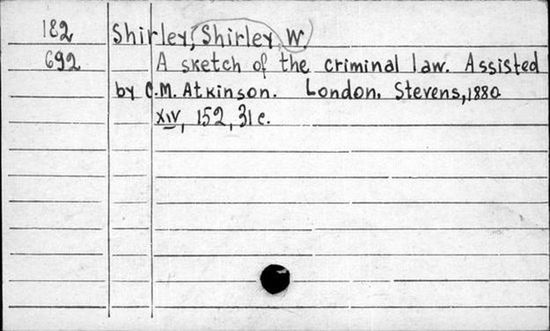 182 Shirley, Shirley W.
692 A sketch of the criminal law. Assisted
by C.M. Atkinson. London. Stevens, 1880
XIV, 152, 31 c.